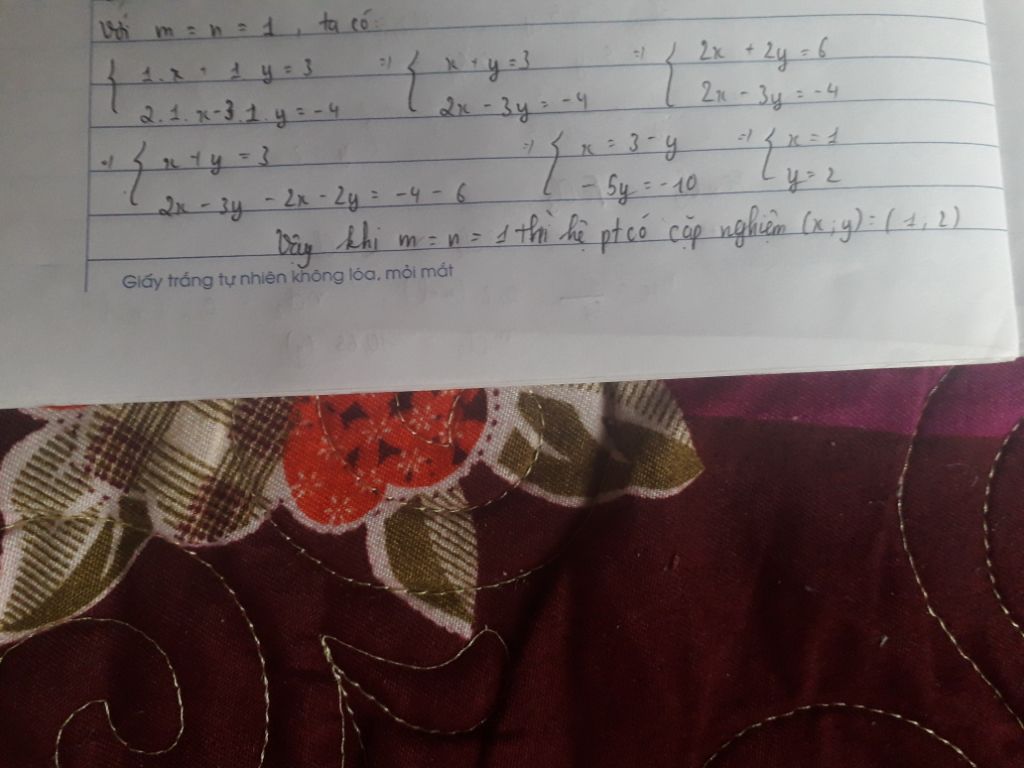 Với m = n = 1, ta có:
{ 1.x + 1 y = 3 => { x + y = 3 => { 2x + 2y = 6
2.1.x - 3.1.y = -4 2x - 3y = -4 2x - 3y = -4
=> { x + y = 3 => { x = 3 - y => { x = 1
2x - 3y - 2x - 2y = -4 - 6 - 5y = -10 y = 2
Vậy khi m = n = 1 thì hệ pt có cặp nghiệm (x; y) = (1, 2)
Giấy trắng tự nhiên không lóa, mỏi mắt